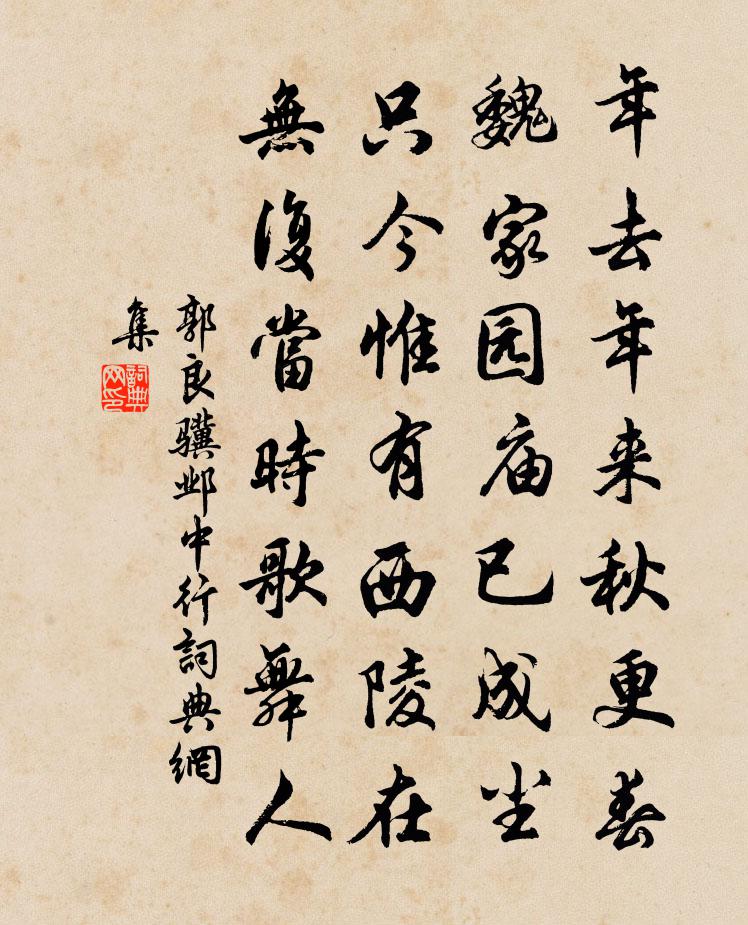 年去年来秋更春
魏家园庙已成尘
只今惟有西陵在
無復當時歌舞人
郭良骥邺中行詞典網
集
詞典
网印